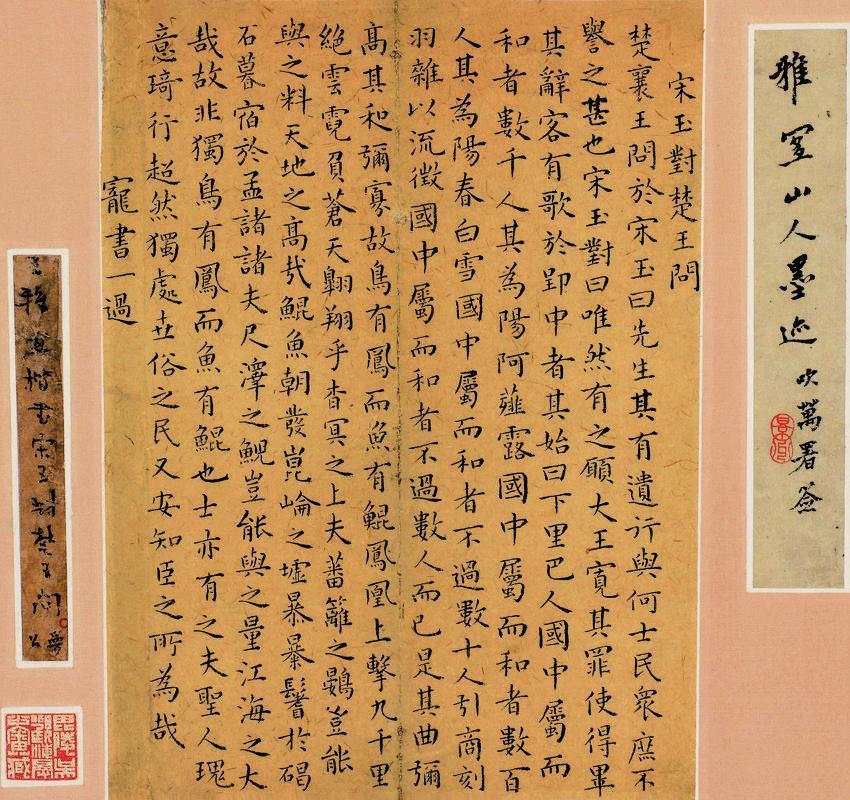 雅宜山人墨迹 吹萬署簽
宋玉對楚王問
楚襄王問於宋玉曰先生其有遺行與何士民衆庶不
譽之甚也宋玉對曰唯然有之願大王寬其罪使得畢
其辭客有歌於郢中者其始曰下里巴人國中屬而
和者數千人其為陽阿薤露國中屬而和者數百
人其為陽春白雪國中屬而和者不過數十人引商刻
羽雜以流徵國中屬而和者不過數人而已是其曲彌
高其和彌寡故鳥有鳳而魚有鯤鳳凰上擊九千里
絶雲霓負蒼天翺翔乎杳冥之上夫蕃籬之鷃豈能
與之料天地之高哉鯤魚朝發崑崘之墟暴暴鬐於碣
石暮宿於孟諸諸夫尺澤之鯢豈能與之量江海之大
哉故非獨鳥有鳳而魚有鯤也士亦有之夫聖人瑰
意琦行超然獨處世俗之民又安知臣之所為哉
寵書一過
王雅宜楷書宋玉對楚王問